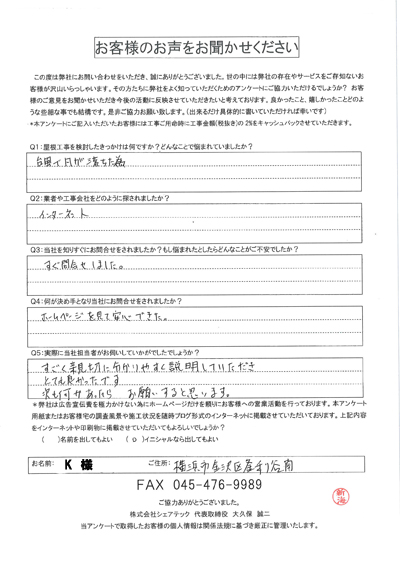 お客様のお声をお聞かせください
この度は弊社にお問い合わせをいただき、誠にありがとうございました。世の中には弊社の存在やサービスをご存知ないお
客様が沢山いらっしゃいます。その方たちに弊社をよく知っていただくためのアンケートにご協力いただけるでしょうか? お客
様のご意見をお聞かせいただき今後の活動に反映させていただきたいと考えております。良かったこと、嬉しかったことどのよ
うな些細な事でも結構です。是非ご協力お願い致します。(出来るだけ具体的に書いていただければ幸いです)
*本アンケートにご記入いただいたお客様には工事ご用命時に工事金額(税抜き)の2%をキャッシュバックさせていただきます。
Q1:屋根工事を検討したきっかけは何ですか?どんなことで悩まれていましたか?
台風で瓦が落ちた為
Q2:業者や工事会社をどのように探されましたか?
インターネット
Q3:当社を知りすぐにお問合せをされましたか?もし悩まれたとしたらどんなことがご不安でしたか?
すぐ問合せしました。
Q4:何が決め手となり当社にお問合せをされましたか?
ホームページを見て安心できた。
Q5:実際に当社担当者がお伺いしていかがでしたでしょうか?
すごく親切に分かりやすく説明していただき
とても良かったです
次も何かあったら お願いすると思います。
*弊社は広告宣伝費を極力かけない為にホームページだけを頼りにお客様への営業活動を行っております。本アンケート
用紙またはお客様宅の調査風景や施工状況を随時ブログ形式のインターネットに掲載させていただいております。上記内容
をインターネットや印刷物に掲載させていただいてもよろしいでしょうか?
( )名前を出してもよい ( o )イニシャルなら出してもよい
お名前: K 様 ご住所: 横浜市金沢区釜利谷南
FAX 045-476-9989
ご協力ありがとうございました。
株式会社シェアテック 代表取締役 大久保 誠二
当アンケートで取得したお客様の個人情報は関係法規に基づき厳正に管理いたします。